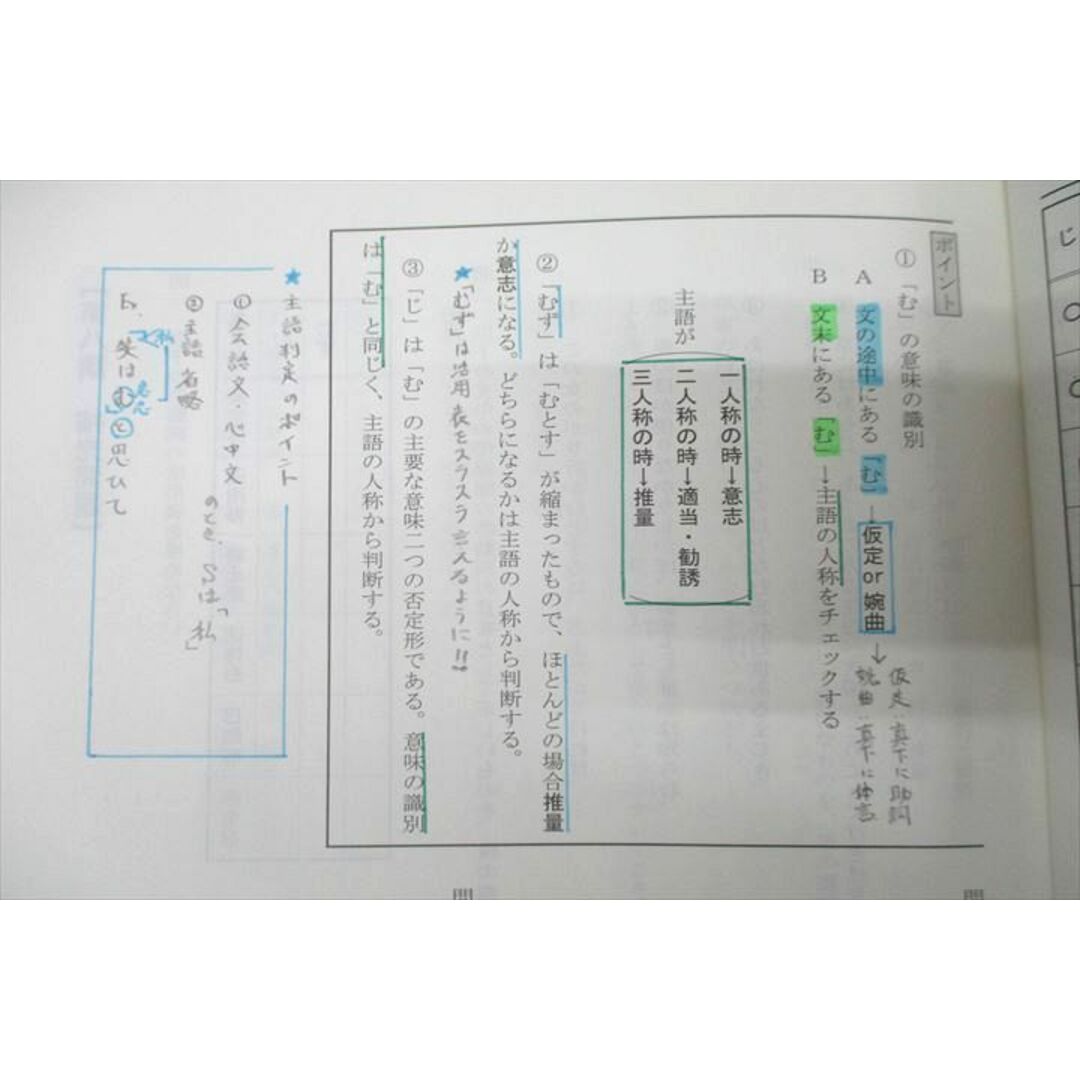 じ
ポイント
①「む」の意味の識別
A 文の途中にある「む」→仮定or婉曲
→仮定:真下に助詞
婉曲:真下に体言
B 文末にある「む」→主語の人称をチェックする
主語が
一人称の時→意志
二人称の時→適当・勧誘
三人称の時→推量
②「むず」は「むとす」が縮まったもので、ほとんどの場合推量
か意志になる。どちらになるかは主語の人称から判断する。
★「むず」は活用表をスラスラ言えるように!!
③「じ」は「む」の主要な意味二つの否定形である。意味の識別
は「む」と同じく、主語の人称から判断する。
★主語判定のポイント
①会話文・心中文
②主語省略
のとき、Sは「私」
私
意志
む」と思ひて
問
問